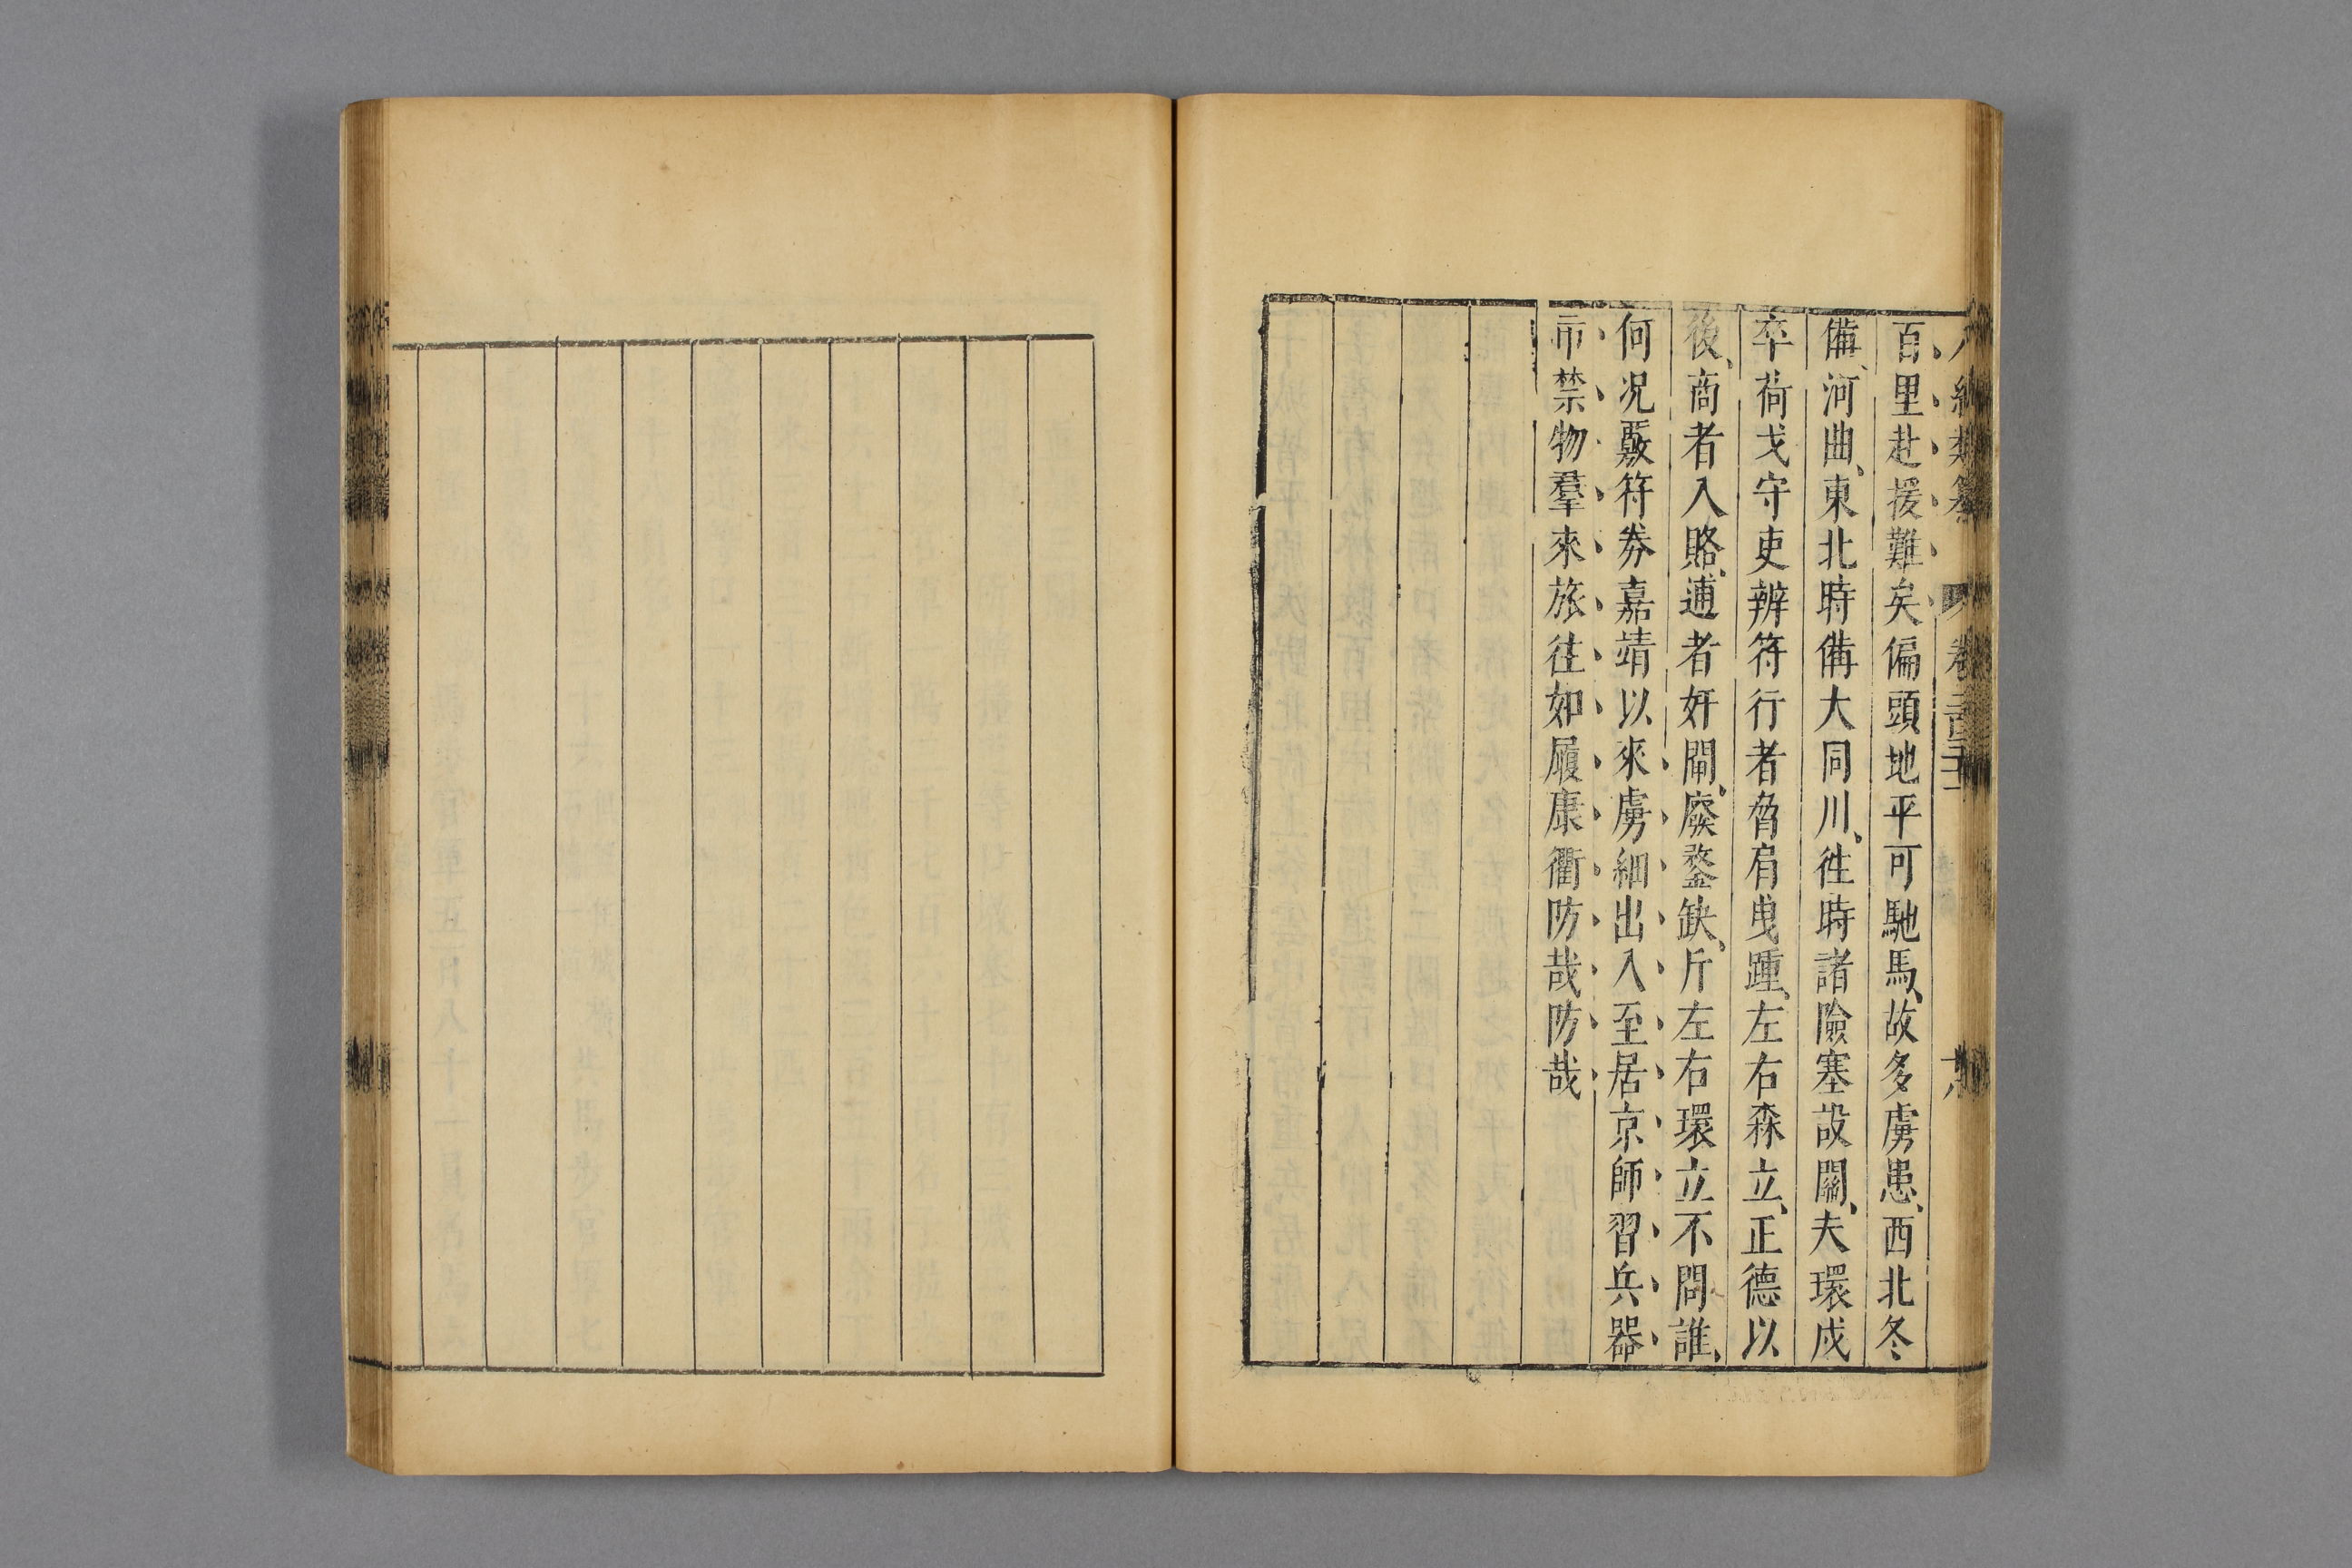 八編類纂 卷二百三十二 十八
百里赴援難矣偏頭地平可馳馬、故多虜患、西北冬
備、河曲、東北時備大同川、徃時諸險塞設關、夫環戍
卒荷戈守吏辨符行者脅肩曳踵、左右森立、正德以
後、商者入賂、逋者奸闌、廢鍪缺、斤左右環立不問誰、
何况覈符券嘉靖以來虜細出入至居京師習兵器
市禁物羣來旅徃如履康衢防哉防哉